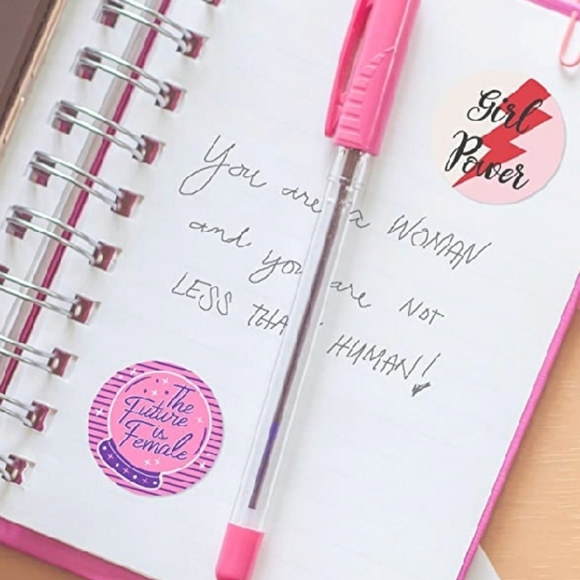 Girl
Power
You are a WOMAN
and you are NOT
LESS THAN HUMAN!
The
Future
is
Female